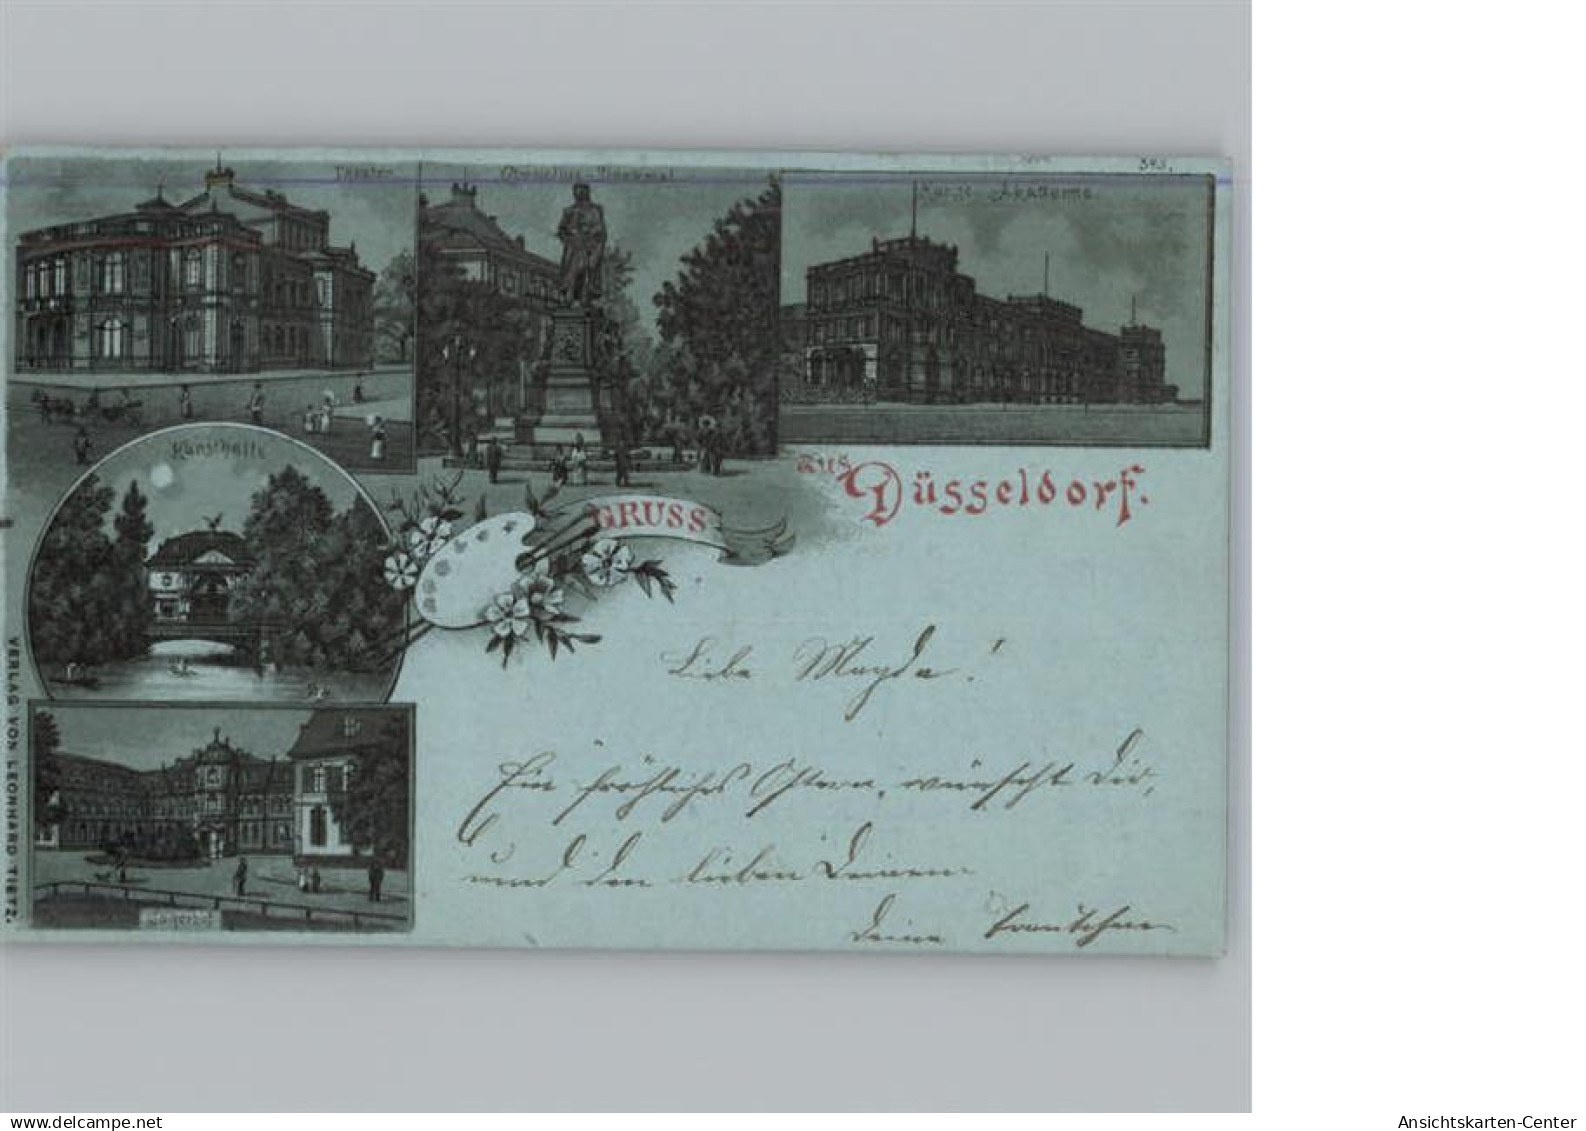 Theater
Cornelius-Denkmal
Kunst-Akademie
543.
Kunsthalle
GRUSS
aus Düsseldorf.
VERLAG VON LEONHARD TIETZ.
Jägerhof
Liebe Magda!
Ein fröhliches Ostern, wünscht Dir,
und den lieben Deinen
Deine
www.delcampe.net
Ansichtskarten-Center